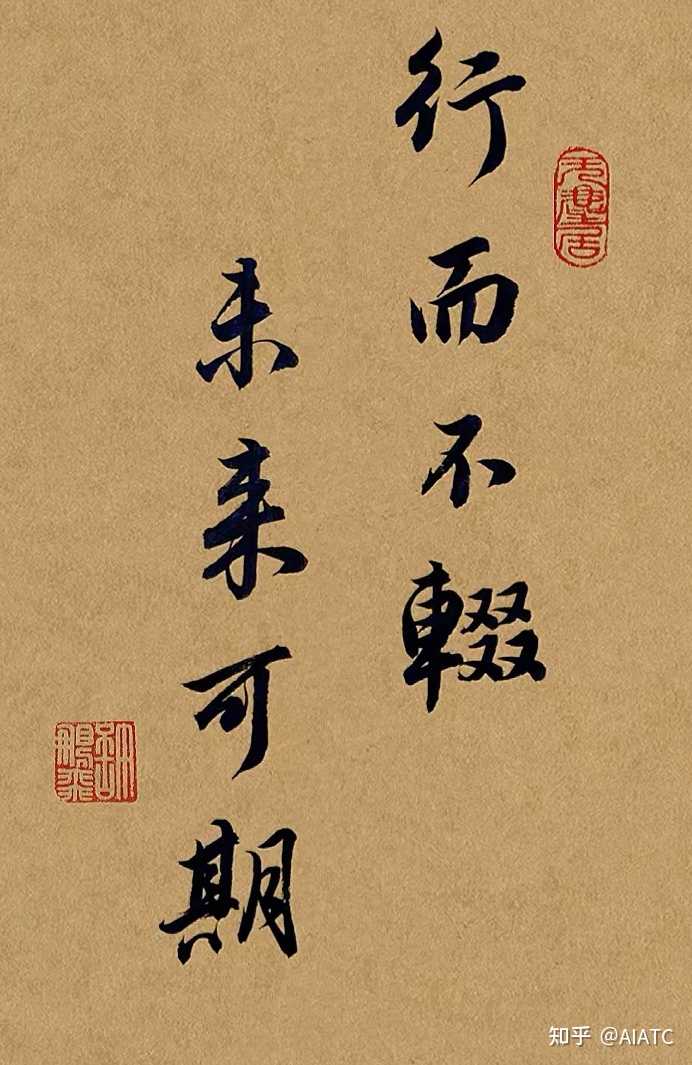 行而不辍
未来可期
知乎 @AIATC